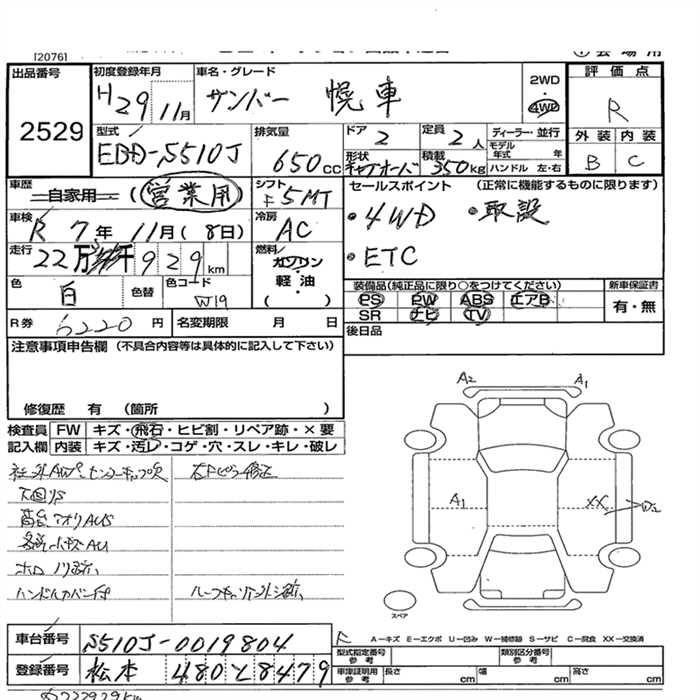 [2076]
出品番号
2529
初度登録年月
H29 11月
車名・グレード
サンバー 幌車
2WD
4WD
評価点
R
外装 内装
B C
型式
EBD-S510J
排気量
650cc
ドア
2
定員
2人
ディーラー・並行
モデル年式 年
形状
積載
350kg
ハンドル 左・右
車歴
自家用 (営業用)
シフト
F5MT
セールスポイント (正常に機能するものに限ります)
・4WD ・取説
・ETC
車検
R7年11月(8日)
冷房
AC
走行
22万 929km
燃料
ガソリン
軽油
( )
色
白
色替
色コード
W19
装備品(純正品に限り○をつけてください)
PS PW ABS エアB
SR ナビ TV
新車保証書
有・無
R券 6220円
名変期限 月 日
後日品
注意事項申告欄 (不具合内容等は具体的に記入して下さい)
修復歴 有 (箇所 )
検査員記入欄
FW キズ・飛石・ヒビ割・リペア跡・×要
内装 キズ・汚レ・コゲ・穴・スレ・キレ・破レ
下回りS
荷台アオリAUS
ハンドルカバー付
A2 A1
A1 XX
スペア
R
A−キズ E−エクボ U−凹み W−補修跡 S−サビ C−腐食 XX−交換済
車台番号 S510J-0019804
登録番号 松本 480 と 8479
型式指定番号 参考
類別区分番号 参考
車庫証明用 参考 長さ cm 幅 cm 高さ cm